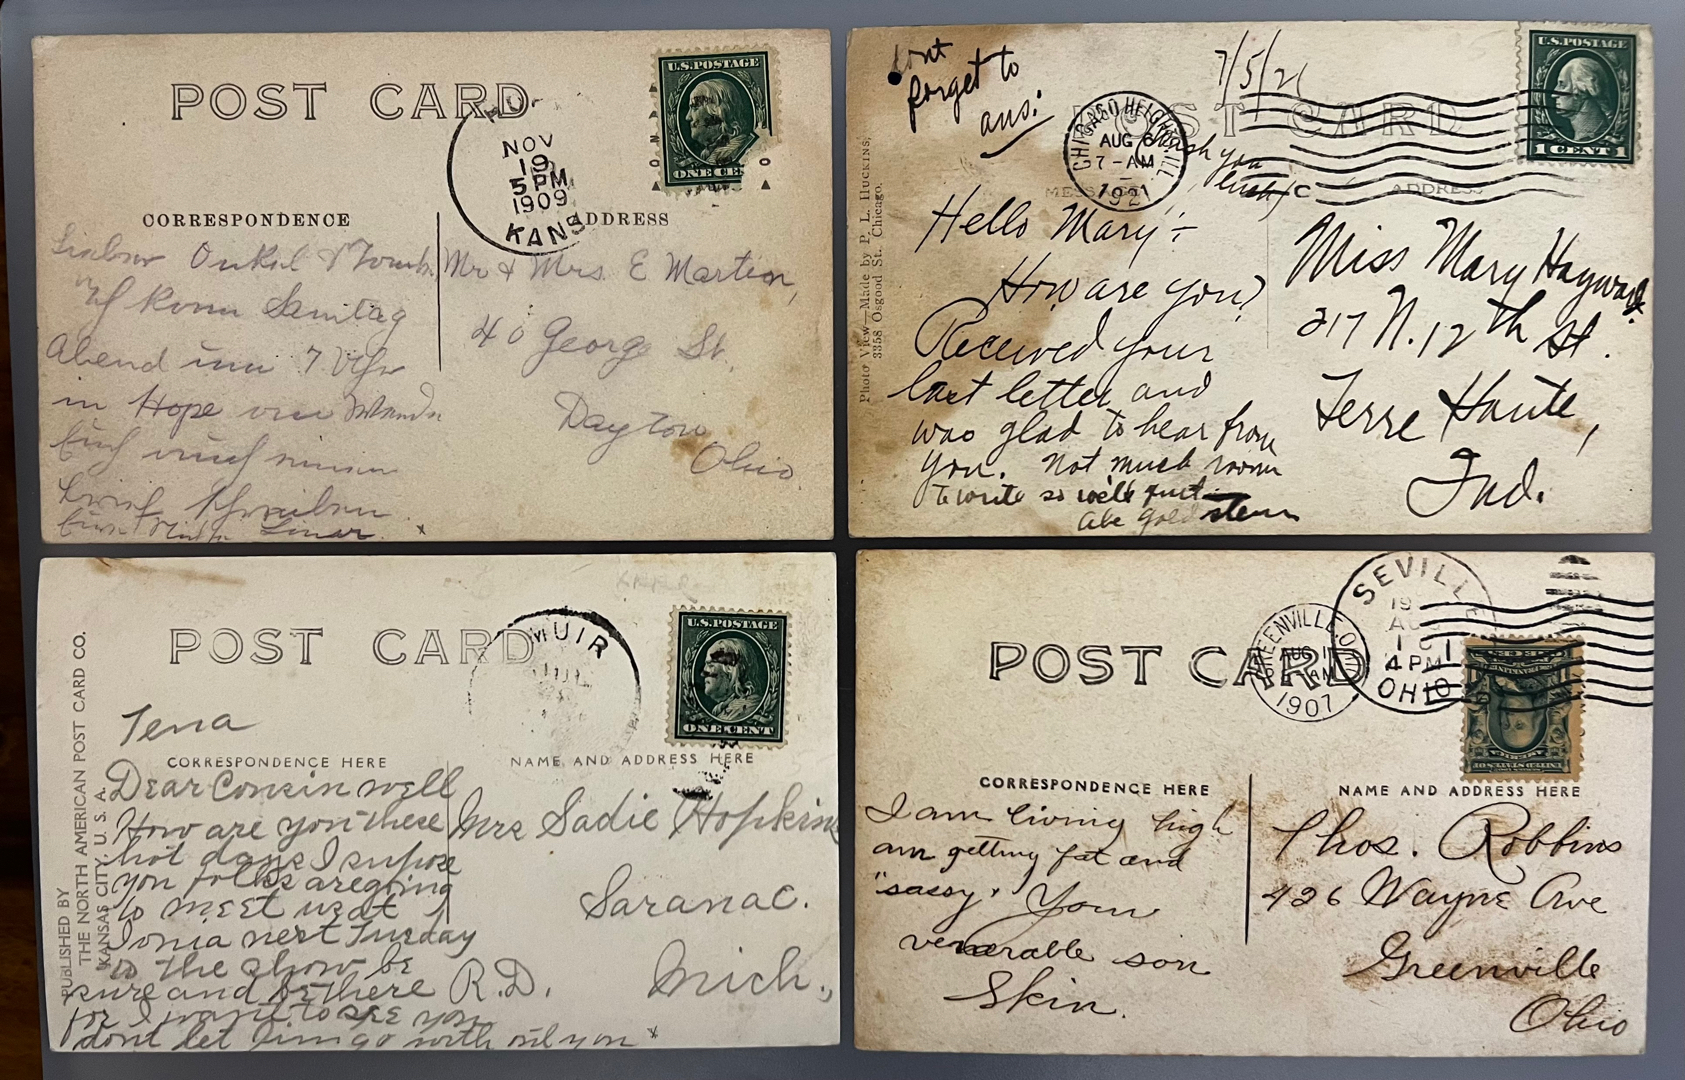 POST CARD
U.S. POSTAGE
ONE CE
NOV
19
5 PM
1909
KANS
CORRESPONDENCE
ADDRESS
Onkel &
Abend um 7 Uhr
in Hope
Mr & Mrs E Martin,
40 George St.
Dayton
Ohio
dont
forget to
ans:
7/5/21
POST CARD
U.S. POSTAGE
1 CENT 1
CHICAGO HEIGHTS ILL
AUG 6
7-AM
1921
ADDRESS
Photo View—Made by P. L. Huckins,
3358 Osgood St. Chicago.
Hello Mary:-
How are you?
Received your
last letter and
was glad to hear from
you. Not much room
to write so we'll quit
Abe Goldstein
Miss Mary Hayward
217 N. 12th St.
Terre Haute,
Ind.
POST CARD
MUIR
U.S. POSTAGE
ONE CENT
PUBLISHED BY
THE NORTH AMERICAN POST CARD CO.
KANSAS CITY, U. S. A.
Tena
CORRESPONDENCE HERE
NAME AND ADDRESS HERE
Dear Cousin well
How are you these
hot days I supose
you folks are going
to meet us at
Ionia next Tuesday
to the show be
sure and be there
for I want to see you
dont let Jim go with out you *
Mrs Sadie Hopkins
Saranac.
R.D. Mich.,
POST CARD
GREENVILLE, OHIO
AUG 1
AM
1907
SEVILLE
4 PM
OHIO
CORRESPONDENCE HERE
NAME AND ADDRESS HERE
I am living high
am getting fat and
"sassy. Your
venerable son
Skin.
Thos. Robbins
426 Wayne Ave
Greenville
Ohio